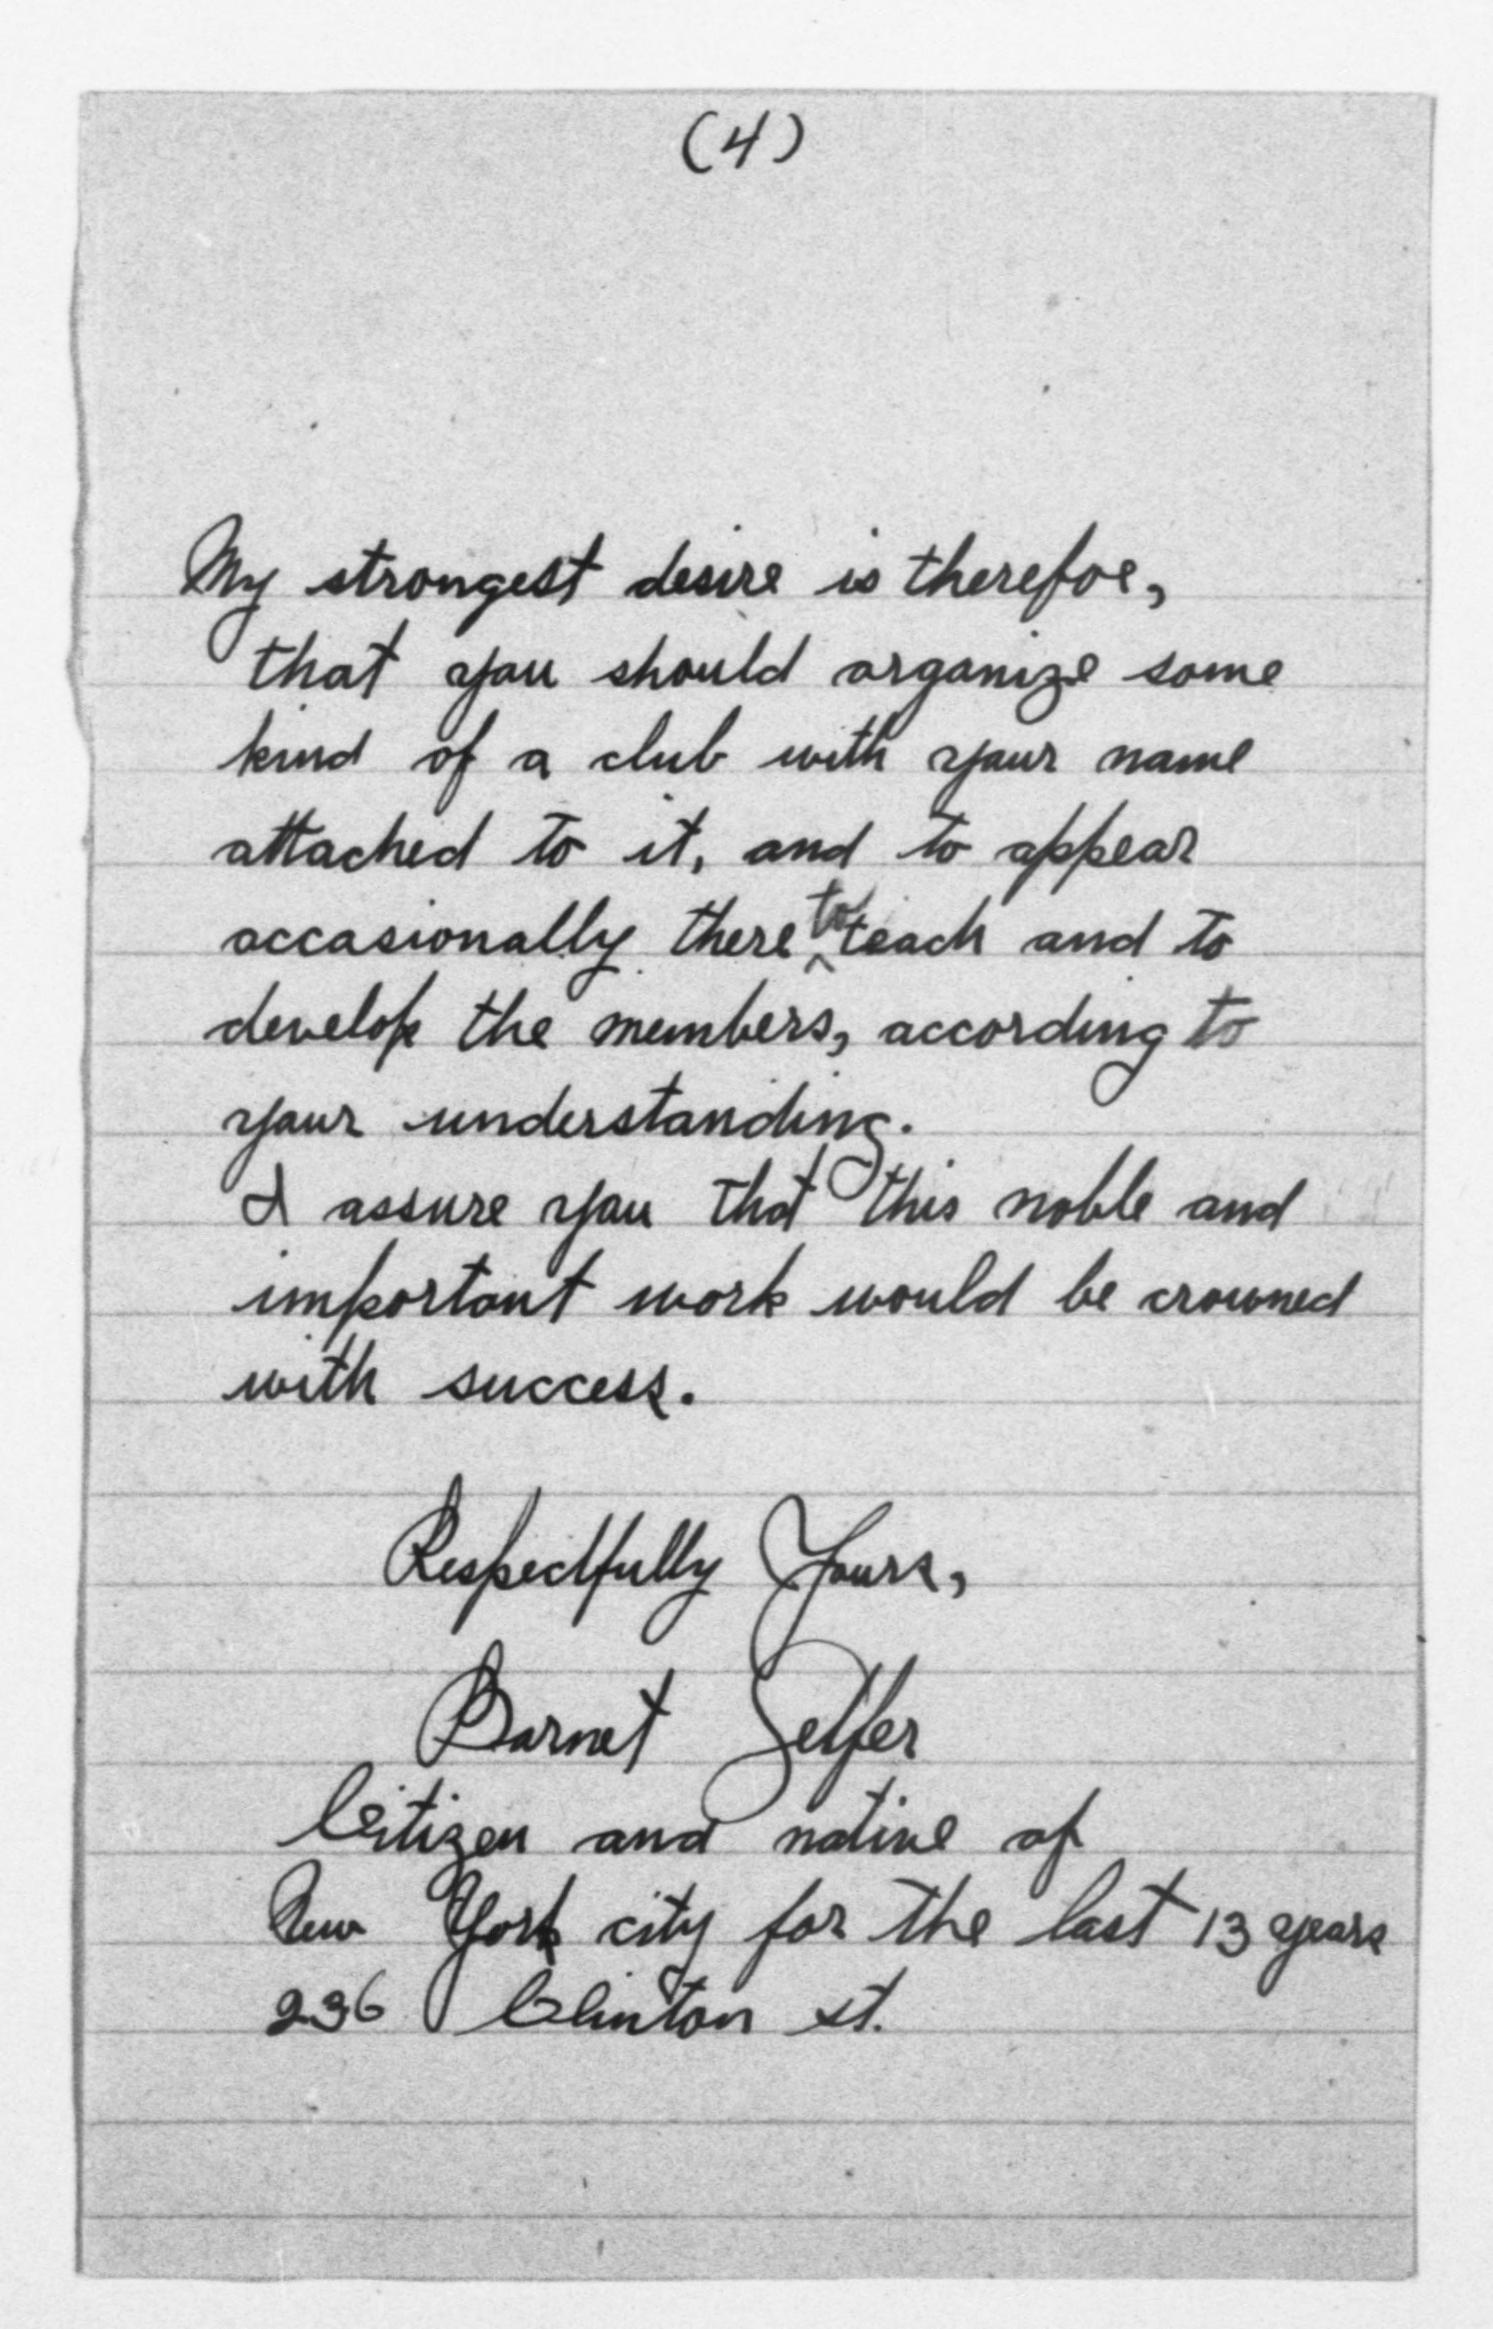 (4)
My strongest desire is therefoe,
that you should organize some
kind of a club with your name
attached to it, and to appear
occasionally there to teach and to
develop the members, according to
your understanding.
I assure you that this noble and
important work would be crowned
with success.
Respectfully Yours,
Barnet
Citizen and native of
New York city for the last 13 years
236 Clinton st.